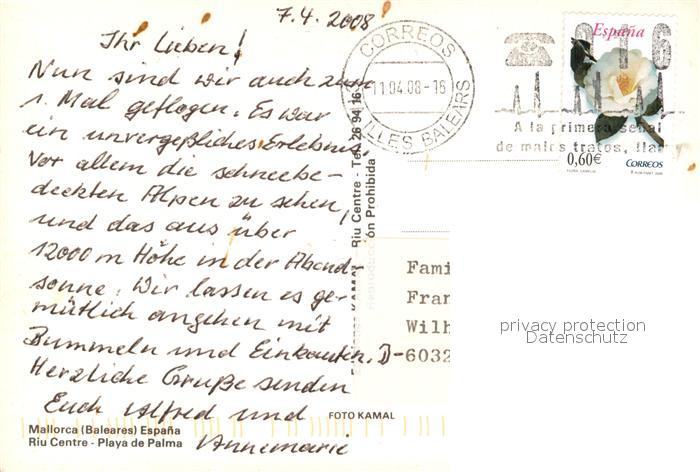 7.4.2008
Ihr Lieben!
Nun sind wir auch zum
1. Mal geflogen. Es war
ein unvergeßliches Erlebnis,
vor allem die schneebe-
deckten Alpen zu sehen,
und das aus über
12000 m Höhe in der Abend-
sonne. Wir lassen es ge-
mütlich angehen mit
Bummeln und Einkaufen.
Herzliche Grüße senden
Euch Alfred und
Annemarie
Mallorca (Baleares) España
Riu Centre - Playa de Palma
FOTO KAMAL
KAMAL - Riu Centre - Tel. 26 94 16
Prohibida
CORREOS
11.04.08-16
ILLES BALEARS
016
A la primera señal
de malos tratos, lla
España
0,60€
CORREOS
Fami
Fran
Wilh
D-6032
privacy protection
Datenschutz